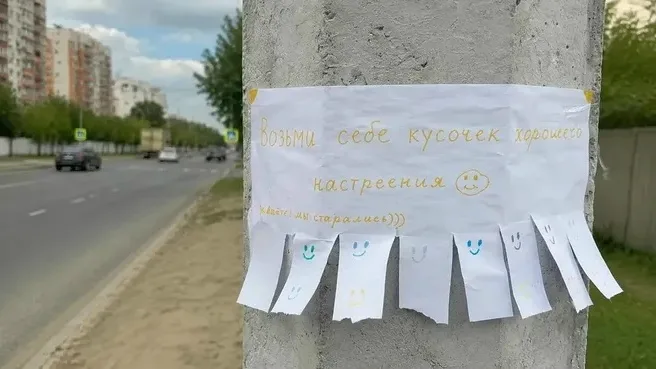 Возьми себе кусочек хорошего
настроения
мы старались)))